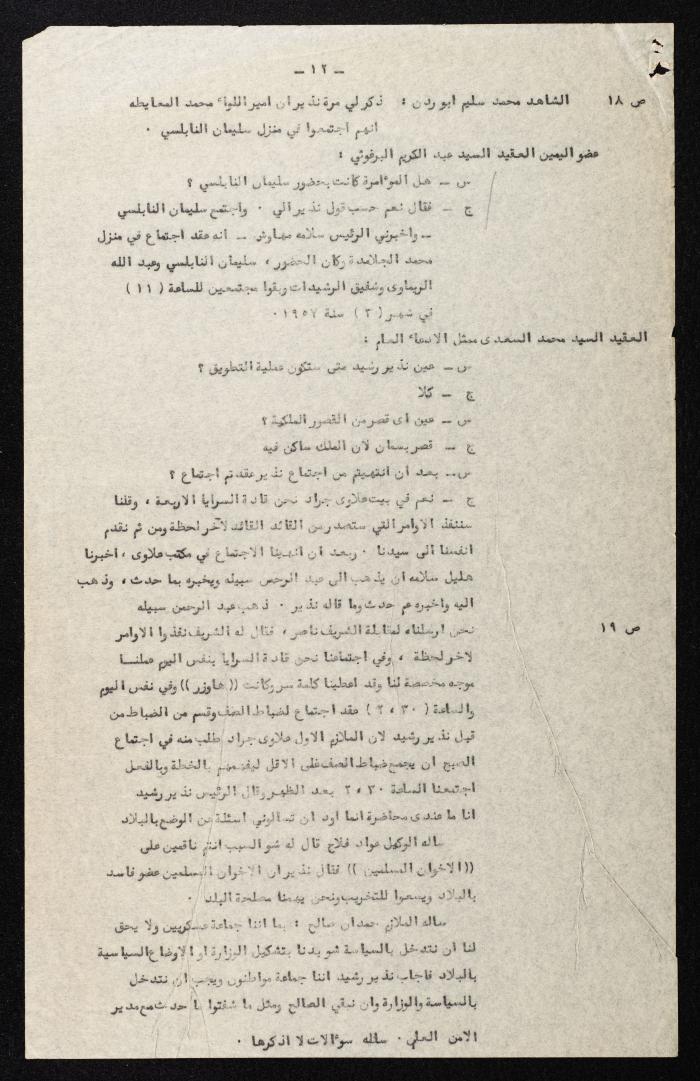 ـ ١٢ ـ
ص ١٨ الشاهد محمد سليم ابو ردن : ذكر لي مرة نذير ان امير اللواء محمد المعايطه
انهم اجتمعوا في منزل سليمان النابلسي .
عضو اليمين العقيد السيد عبد الكريم البرغوثي :
س ـ هل الموءامرة كانت بحضور سليمان النابلسي ؟
ج ـ فقال نعم حسب قول نذير الي . واجتمع سليمان النابلسي
ـ واخبرني الرئيس سلامه مهاوش ـ انه عقد اجتماع في منزل
محمد الجلامدة وكان الحضور ، سليمان النابلسي وعبد الله
الريماوى وشفيق الرشيدات وبقوا مجتمعين للساعة ( ١١ )
في شهر ( ٣ ) سنة ١٩٥٧ .
العقيد السيد محمد السعدى ممثل الادعاء العام :
س ـ عين نذير رشيد متى ستكون عملية التطويق ؟
ج ـ كلا
س ـ عين اى قصر من القصور الملكية ؟
ج ـ قصر بسمان لان الملك ساكن فيه
س ـ بعد ان انتهيتم من اجتماع نذير عقد تم اجتماع ؟
ج ـ نعم في بيت علاوى جراد نحن قادة السرايا الاربعة ، وقلنا
سننفذ الاوامر التي ستصدر من القائد القائد لآخر لحظة ومن ثم نقدم
انفسنا الى سيدنا . وبعد ان انهينا الاجتماع في مكتب علاوى ، اخبرنا
هليل سلامه ان يذهب الى عبد الرحمن سبيله ويخبره بما حدث ، وذهب
اليه واخبره عم حدث وما قاله نذير . ذهب عبد الرحمن سبيله
ص ١٩ نحن ارسلناه لمقابلة الشريف ناصر ، فقال له الشريف نفذوا الاوامر
لاخر لحظة ، وفي اجتماعنا نحن قادة السرايا بنفس اليوم عملنـا
موجه مخصصة لنا وقد اعطينا كلمة سر وكانت (( هاوزر )) وفي نفس اليوم
والساعة ( ٣٠ ، ٢ ) عقد اجتماع لضباط الصف وقسم من الضباط من
قبل نذير رشيد لان الملازم الاول علاوى جراد طلب منه في اجتماع
الصبح ان يجمع ضباط الصف على الاقل ليفهمهم بالخطة وبالفعل
اجتمعنا الساعة ٣٠ ، ٢ بعد الظهر وقال الرئيس نذير رشيد
انا ما عندى محاضرة انما اود ان تسالوني اسئلة عن الوضع بالبلاد
ساله الوكيل عواد فلاح قال له شو السبب انتم ناقمين على
(( الاخوان المسلمين )) فقال نذير ان الاخوان المسلمين عضو فاسد
بالبلاد ويسعوا للتخريب ونحن يهمنا مصلحة البلد .
ساله الملازم حمدان صالح : بما اننا جماعة عسكريين ولا يحق
لنا ان نتدخل بالسياسة شو بدنا بتشكيل الوزارة او الاوضاع السياسية
بالبلاد فاجاب نذير رشيد اننا جماعة مواطنون ويجب ان نتدخل
بالسياسة والوزارة وان ننقي الصالح ومثل ما شفتوا ما حدث مع مدير
الامن العلي . ساله سوءالات لا اذكرها .